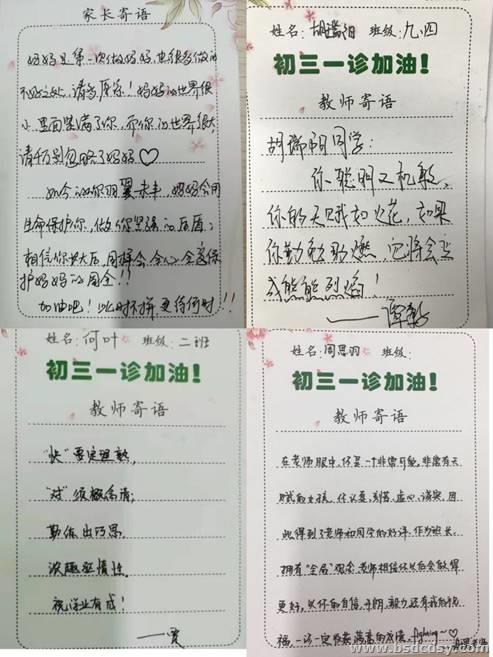 家长寄语
妈妈是第一次做妈妈,也很多做的
不好之处,请多原谅!妈妈的世界很
小,里面装满了你,而你的世界很大,
请千万别忽略了妈妈♡
如今的你羽翼未丰,妈妈会用
生命保护你,做你坚强的后盾;
相信你长大后,同样会全心全意保
护妈妈的周全!!
加油吧!此时不拼更待何时!!
姓名: 胡瑞阳 班级: 九.四
初三一诊加油!
教师寄语
胡瑞阳同学:
你聪明又机敏,
你的天赋如火花,如果
你勤奋助燃,它将会变
成熊熊烈焰!
姓名: 何叶 班级: 二班
初三一诊加油!
教师寄语
"快"要定理熟,
"对"须概念清;
勤练出巧思,
浓趣在情性.
祝学业有成!
姓名: 周思羽 班级:
初三一诊加油!
教师寄语
在老师眼中,你是一个非常可爱,非常有天
赋的女孩,你认真,刻苦,虚心,诚实,因
此得到了老师和同学的好评,作为班长,
拥有"全局"观念,老师相信你以后会做得
更好,以你的自信,开朗,毅力还有我的祝
福,一诊一定你会满意的成绩,fighting~♡
www.bsdcdsy.com